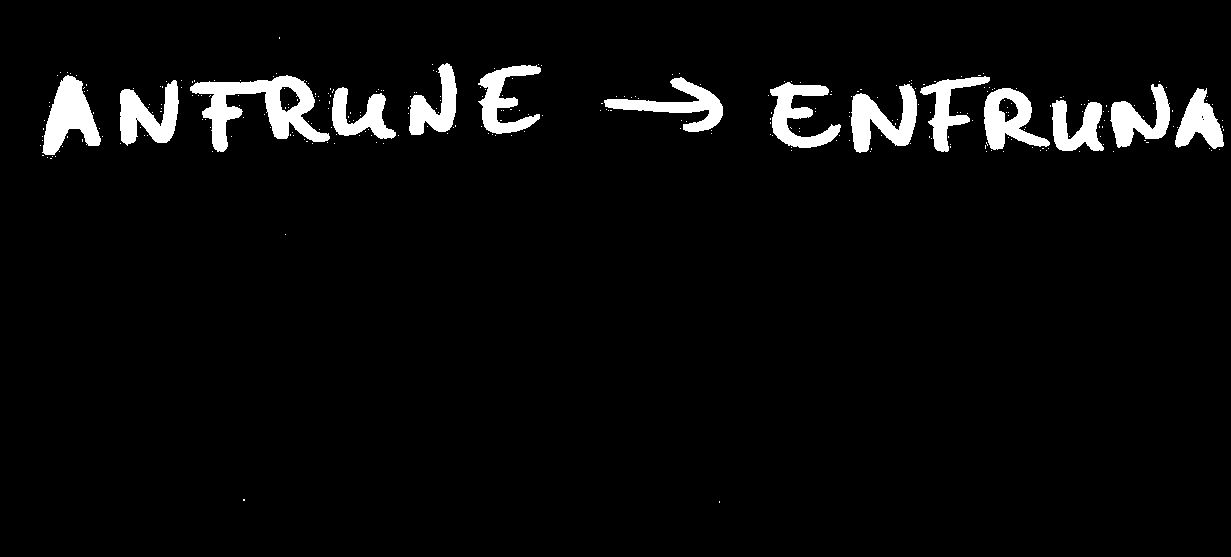 ANFRUNE → ENFRUNA